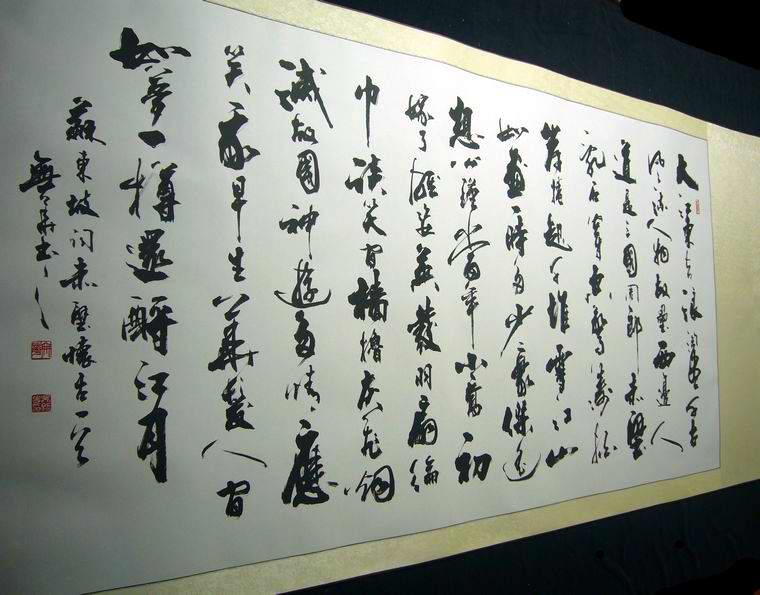 大江東去浪淘盡千古
風流人物故壘西邊人
道是三國周郎赤壁
亂石穿空驚濤拍
岸捲起千堆雪江山
如畫一時多少豪傑遙
想公瑾當年小喬初
嫁了雄姿英發羽扇綸
巾談笑間檣櫓灰飛烟
滅故國神遊多情應
笑我早生華髮人間
如夢一樽還酹江月
蘇東坡詞赤壁懷古一首